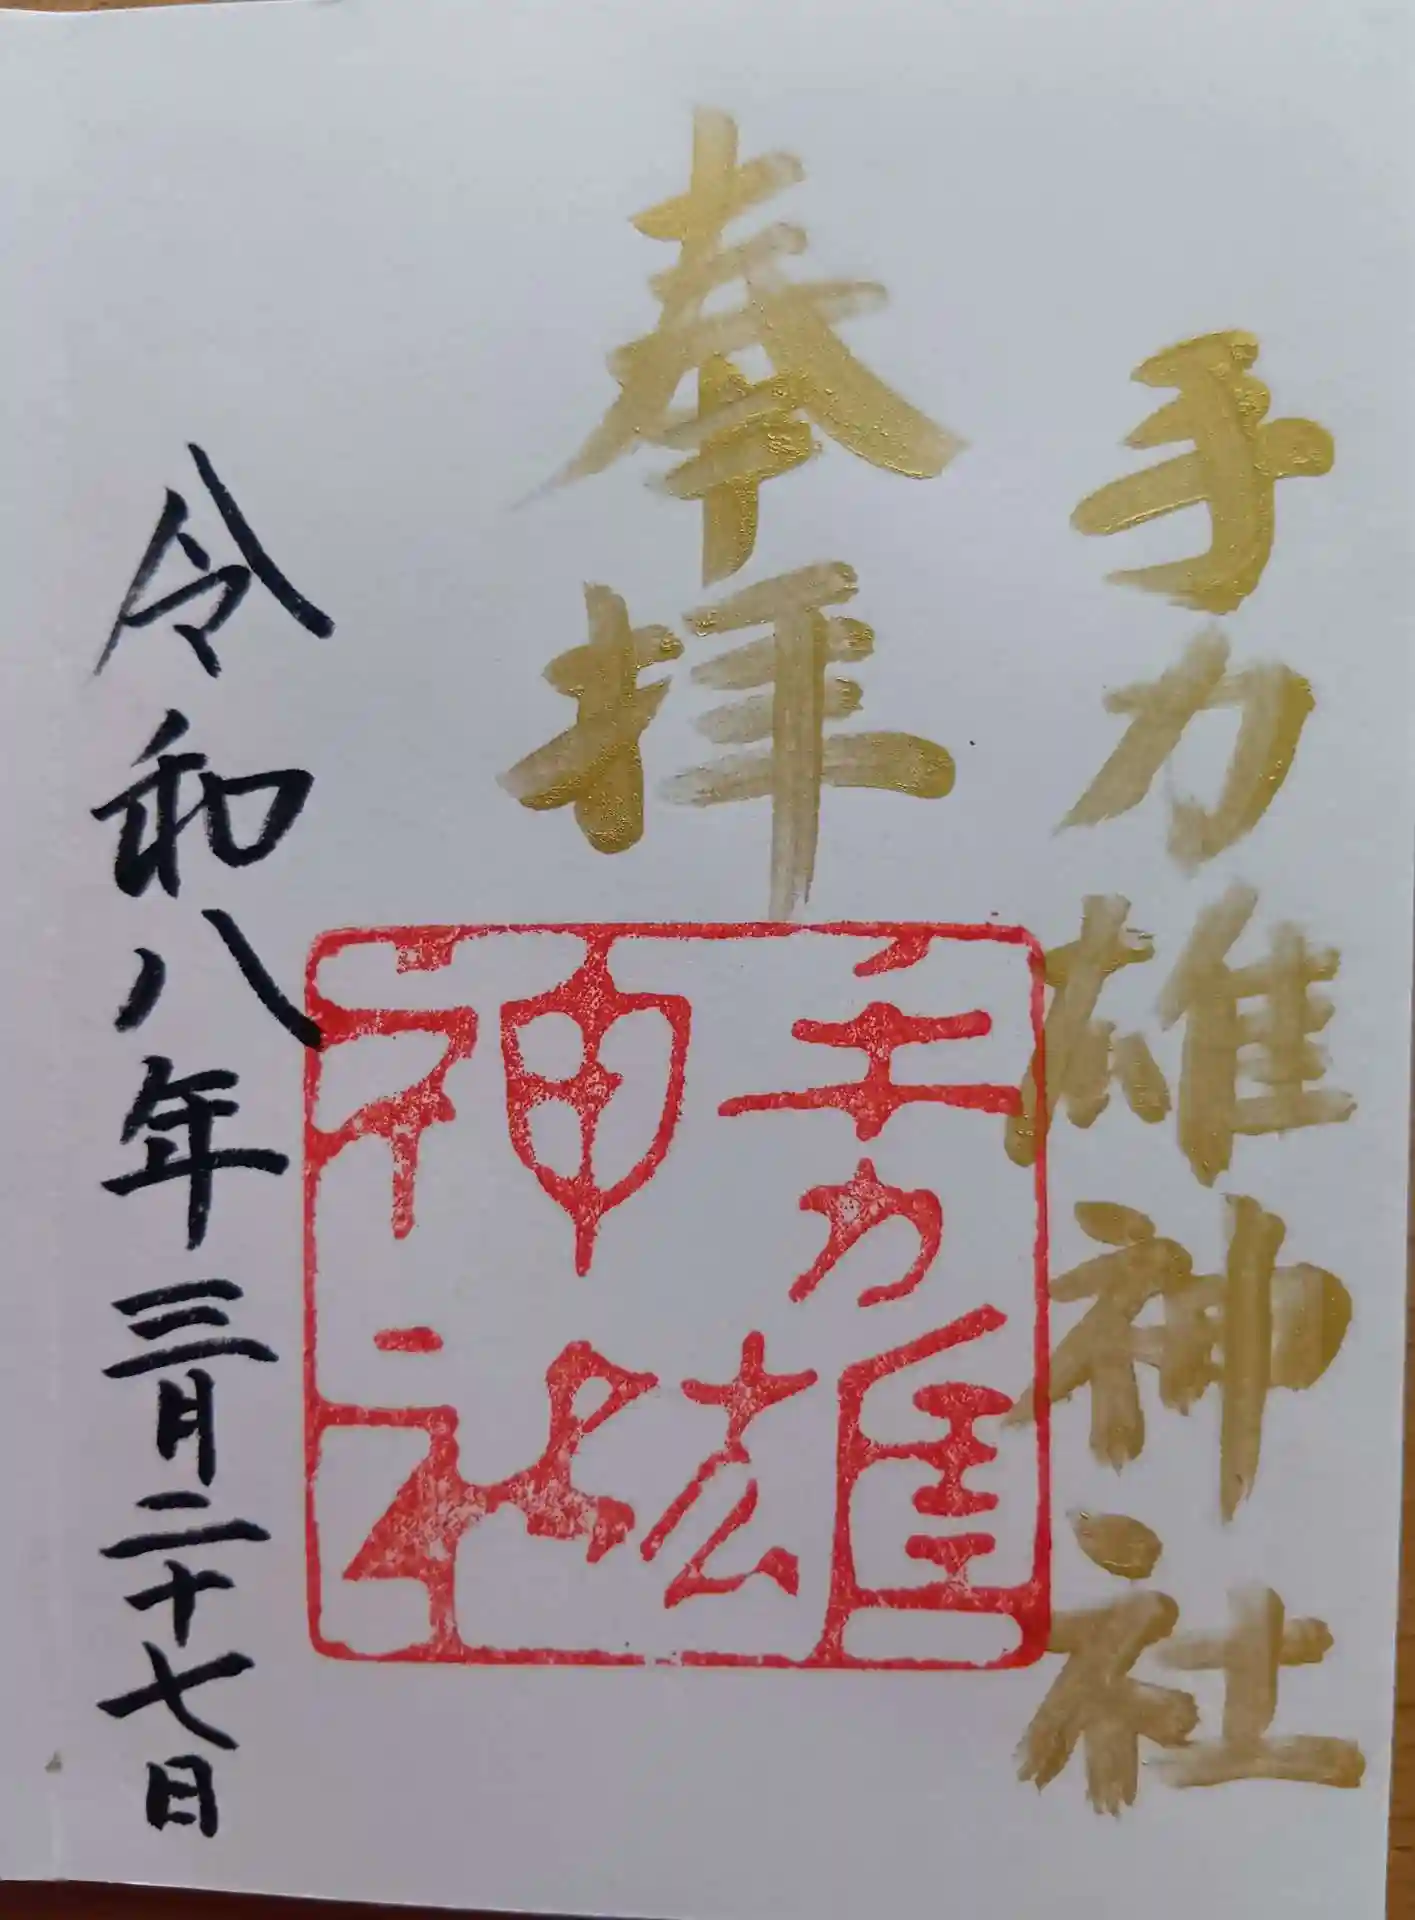 手力雄神社
奉拝
手力雄
神社
令和八年三月二十七日